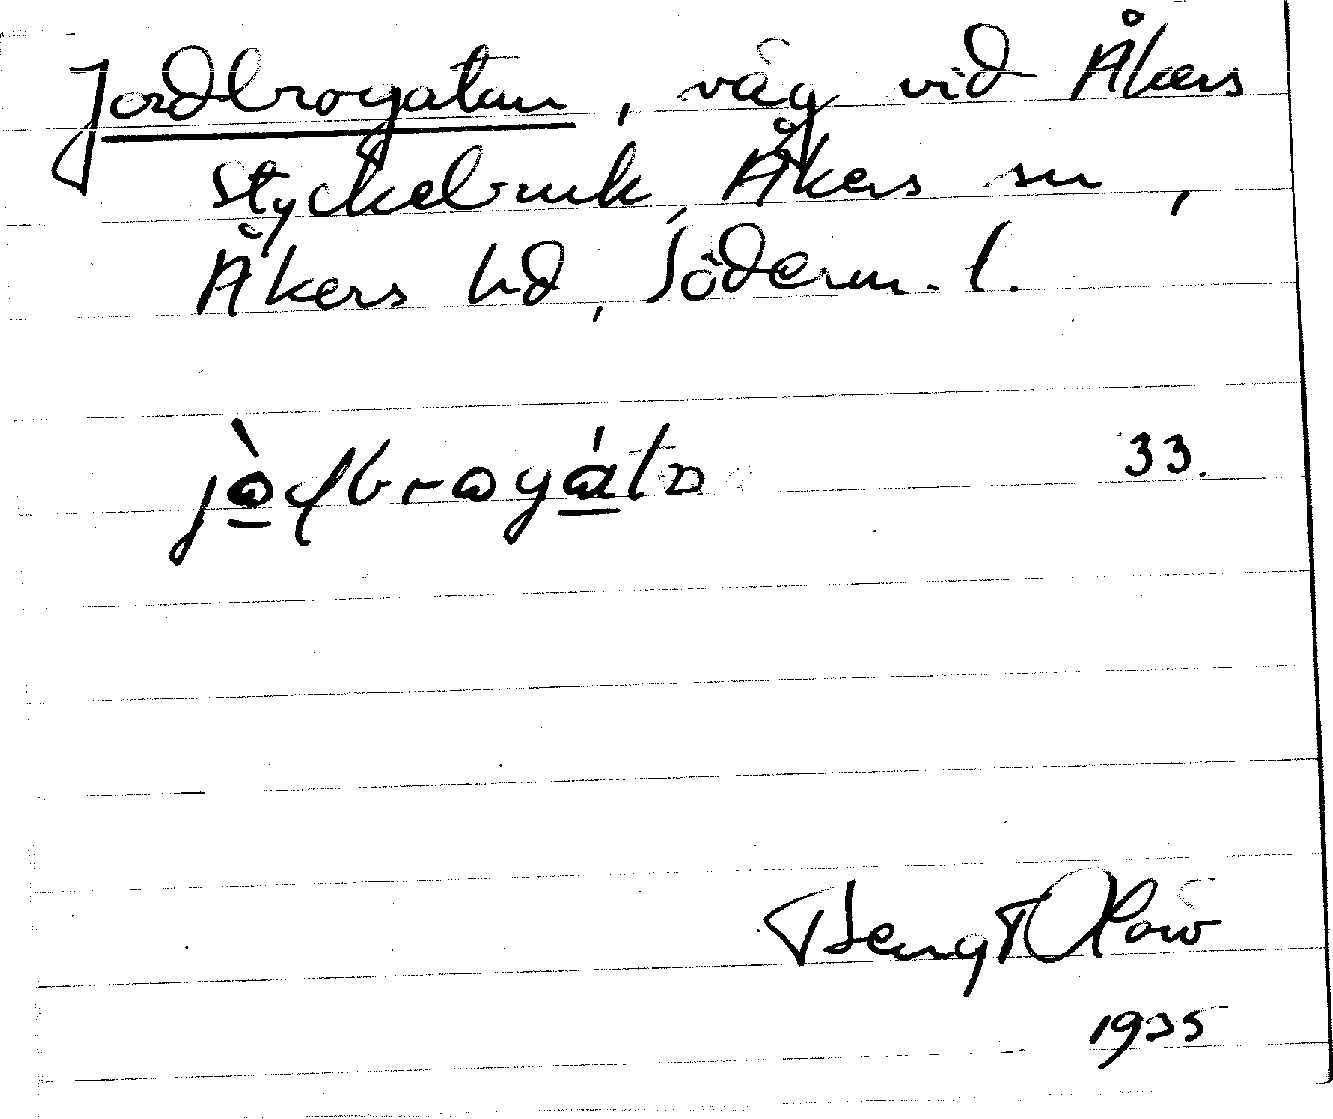 Jordbrogatan, väg vid Åkers
styckebruk, Åkers sn,
Åkers hd, Söderm. l.
33.
Bengt Olów
1935